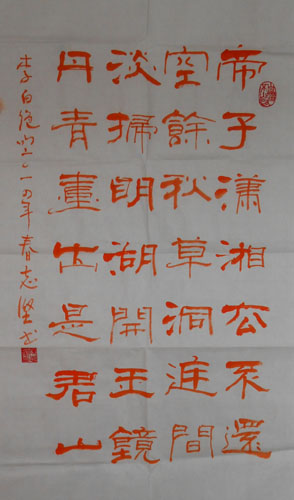 帝子瀟湘去不還
空餘秋草洞庭間
淡掃明湖開玉鏡
丹青畫出是君山
李白 二〇一四年春志堅书